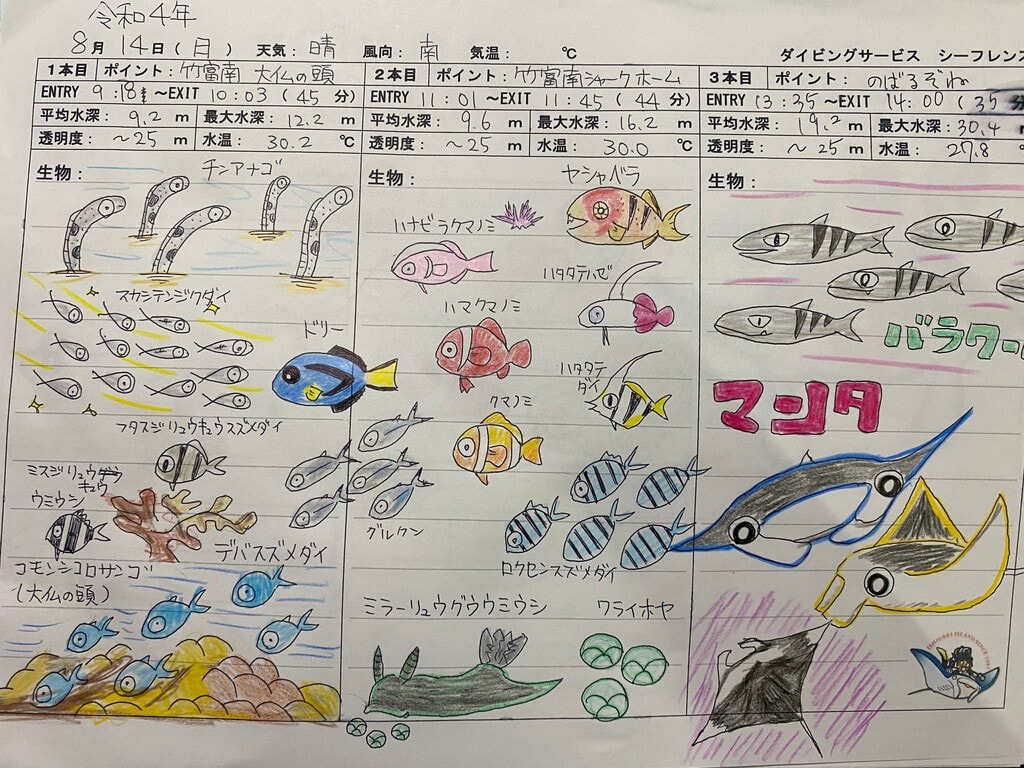 令和4年
8月 14日(日) 天気: 晴 風向: 南 気温: ℃
ダイビングサービス シーフレンズ
1本目 ポイント: 竹富南 大仏の頭
ENTRY 9:18 ~EXIT 10:03 (45 分)
平均水深: 9.2 m 最大水深: 12.2 m
透明度: ~25 m 水温: 30.2 ℃
生物:
チンアナゴ
スカシテンジクダイ
ドリー
フタスジリュウキュウスズメダイ
ミスジリュウ
キュウ
ウミウシ
デバスズメダイ
コモンシコロサンゴ
(大仏の頭)
2本目 ポイント: 竹富南シャークホーム
ENTRY 11:01 ~EXIT 11:45 (44 分)
平均水深: 9.6 m 最大水深: 16.2 m
透明度: ~25 m 水温: 30.0 ℃
生物:
ヤシャベラ
ハナビラクマノミ
ハタタテハゼ
ハマクマノミ
ハタタテ
ダイ
クマノミ
グルクン
ロクセンスズメダイ
ミラーリュウグウウミウシ
ワライホヤ
3本目 ポイント: のばるぞね
ENTRY 13:35 ~EXIT 14:00 (35 分
平均水深: 19.2 m 最大水深: 30.4 m
透明度: ~25 m 水温: 27.8 ℃
生物:
バラクー
マンタ